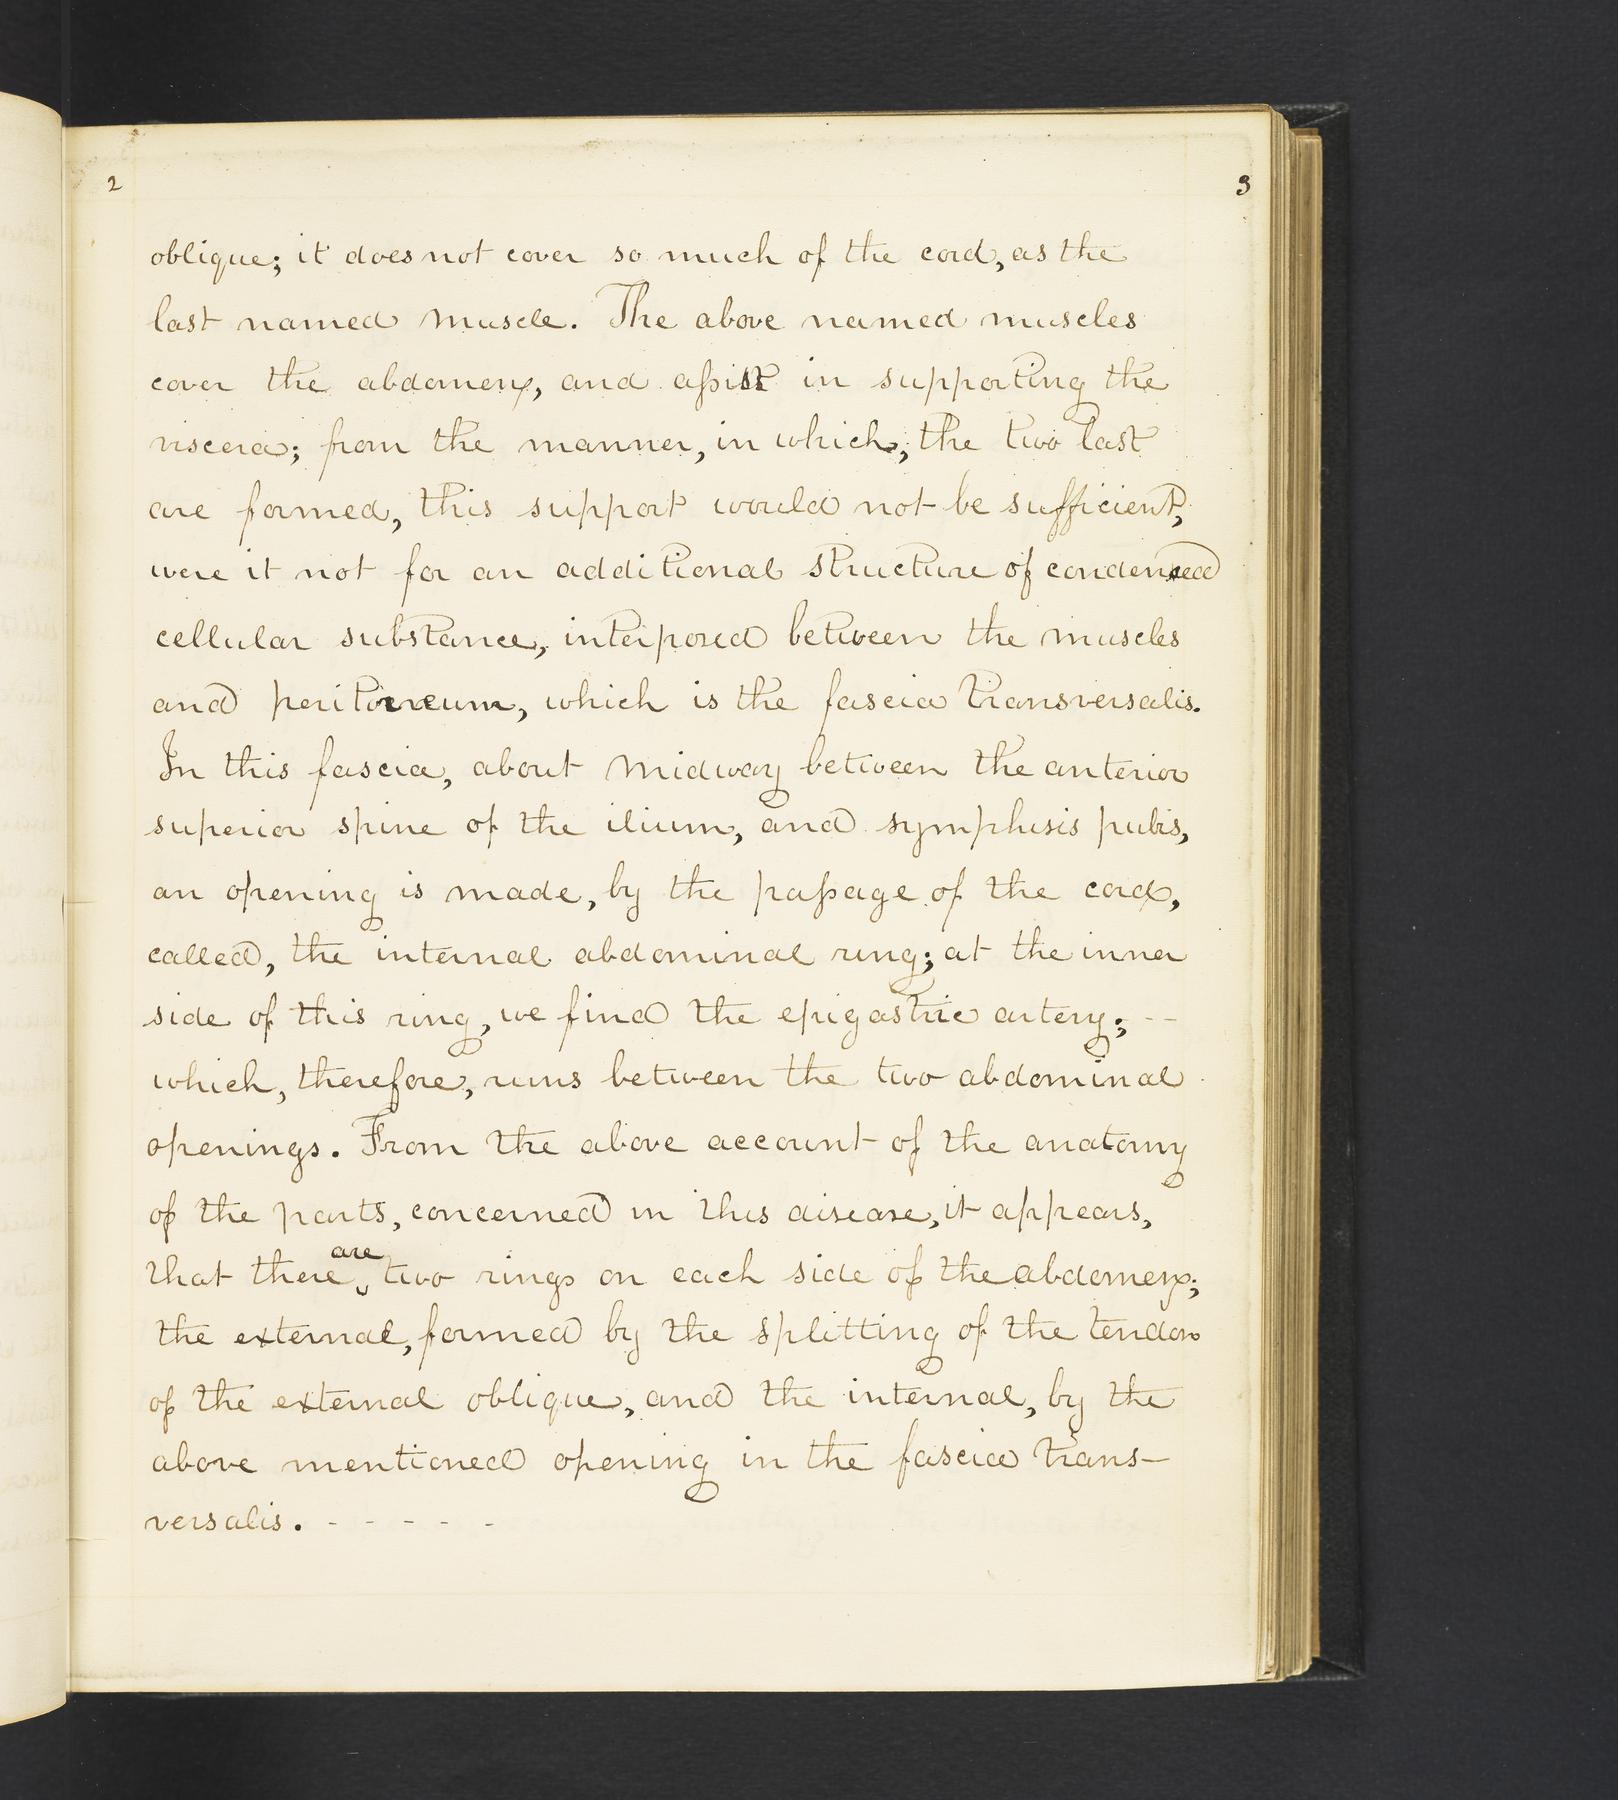 2
3
oblique; it does not cover so much of the cord, as the
last named muscle. The above named muscles
cover the abdomen, and aſsist in supporting the
viscera; from the manner, in which, the two last
are formed, this support would not be sufficient,
were it not for an additional structure of condensed
cellular substance, interposed between the muscles
and peritoneum, which is the fascia transversalis.
In this fascia, about midway between the anterior
superior spine of the ilium, and symphisis pubis,
an opening is made, by the paſsage of the cord,
called, the internal abdominal ring; at the inner
side of this ring, we find the epigastric artery; --
which, therefore, runs between the two abdominal
openings. From the above account of the anatomy
of the parts, concerned in this disease, it appears,
that there are two rings on each side of the abdomen;
the external, formed by the splitting of the tendon
of the external oblique, and the internal, by the
above mentioned opening in the fascia trans-
versalis. - - - - -